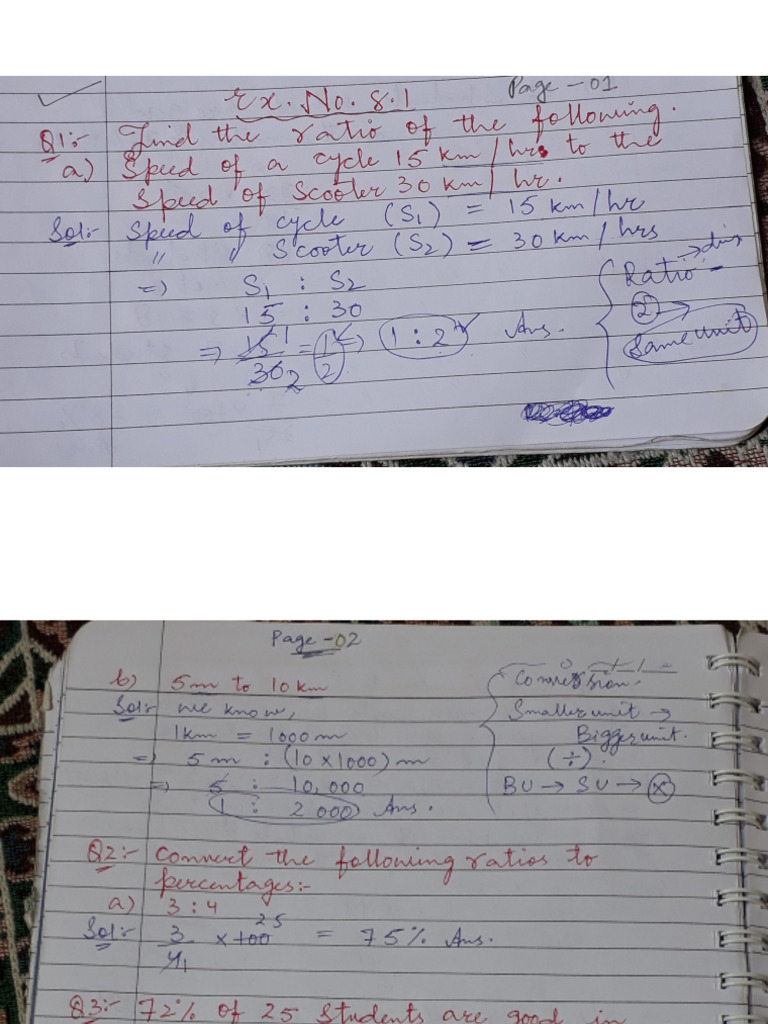 Page - 01
Ex. No. 8.1
Q1:- Find the ratio of the following.
a) Speed of a cycle 15 km/hrs to the
Speed of Scooter 30 km/hr.
Sol:- Speed of cycle (S1) = 15 km/hr
" " Scooter (S2) = 30 km/hrs
=> S1 : S2
15 : 30
=> 15 1 / 30 2 = 1/2 => 1 : 2 Ans.
Ratio → div
2 →
Same unit
Page - 02
b) 5m to 10 km
Sol:- we know,
1km = 1000 m
=> 5 m : (10 x 1000) m
=> 5 : 10,000
1 : 2000 Ans.
Smaller unit →
Bigger unit.
(÷).
BU → SU → x
Q2:- Convert the following ratios to
percentages:-
a) 3 : 4
Sol:- 3/4 1 x 100 25 = 75% Ans.
Q3:- 72% of 25 students are good in